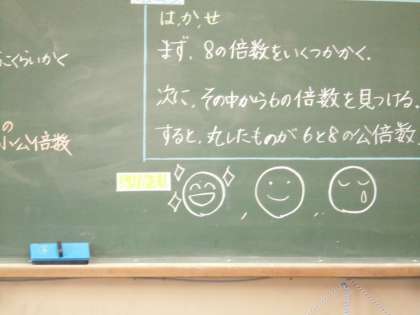 は、か、せ
まず、8の倍数をいくつかかく.
こくらいかく
次に、その中から6の倍数を見つける.
の
小公倍数
すると、丸したものが6と8の公倍数.